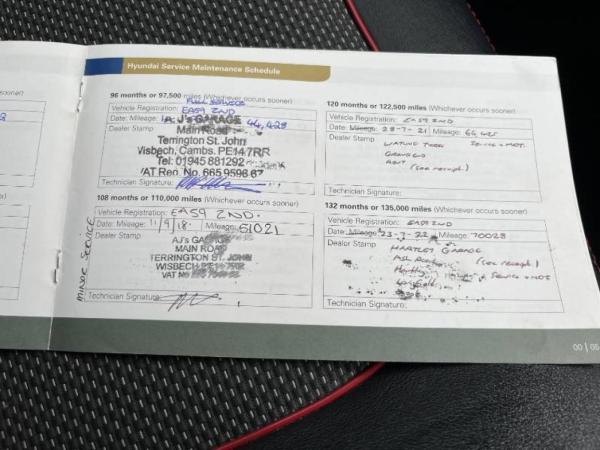 Hyundai Service Maintenance Schedule
96 months or 97,500 miles (Whichever occurs sooner)
FULL SERVICE
Vehicle Registration: EA59 ZND
Date: Mileage: 44,428
Dealer Stamp
A. J's GARAGE
Main Road
Terrington St. John
Visbech, Cambs. PE14 7RR
Tel: 01945 881292
VAT Reg. No. 665 9596 67
Technician Signature:
108 months or 110,000 miles (Whichever occurs sooner)
MINOR SERVICE
Vehicle Registration: EA59 ZND.
Date: 11/9/18. Mileage: 51021
Dealer Stamp
AJ's GARAGE
MAIN ROAD
TERRINGTON ST. JOHN
WISBECH
VAT No
Technician Signature:
120 months or 122,500 miles (Whichever occurs sooner)
Vehicle Registration: EA59 ZND
Date: Mileage: 28-7-21 Mileage: 66,485
Dealer Stamp
SERVICE + MOT.
(see receipt)
Technician Signature:
132 months or 135,000 miles (Whichever occurs sooner)
Vehicle Registration: EA59 ZND
Date: Mileage: 23-7-22 Mileage: 70028
Dealer Stamp
HARTLEY GARAGE
(see receipt)
Service + MOT
Technician Signature:
00 | 05